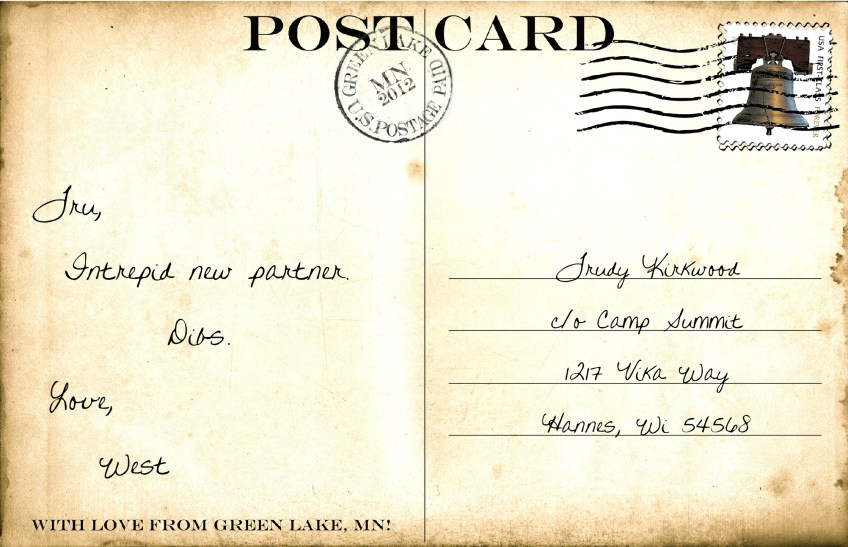 POST CARD
GREEN LAKE
MN
2012
U.S.POSTAGE PAID
USA FIRST-CLASS FOREVER
Tru,
Intrepid new partner.
Dibs.
Love,
West
WITH LOVE FROM GREEN LAKE, MN!
Trudy Kirkwood
c/o Camp Summit
1217 Vika Way
Hannes, Wi 54568